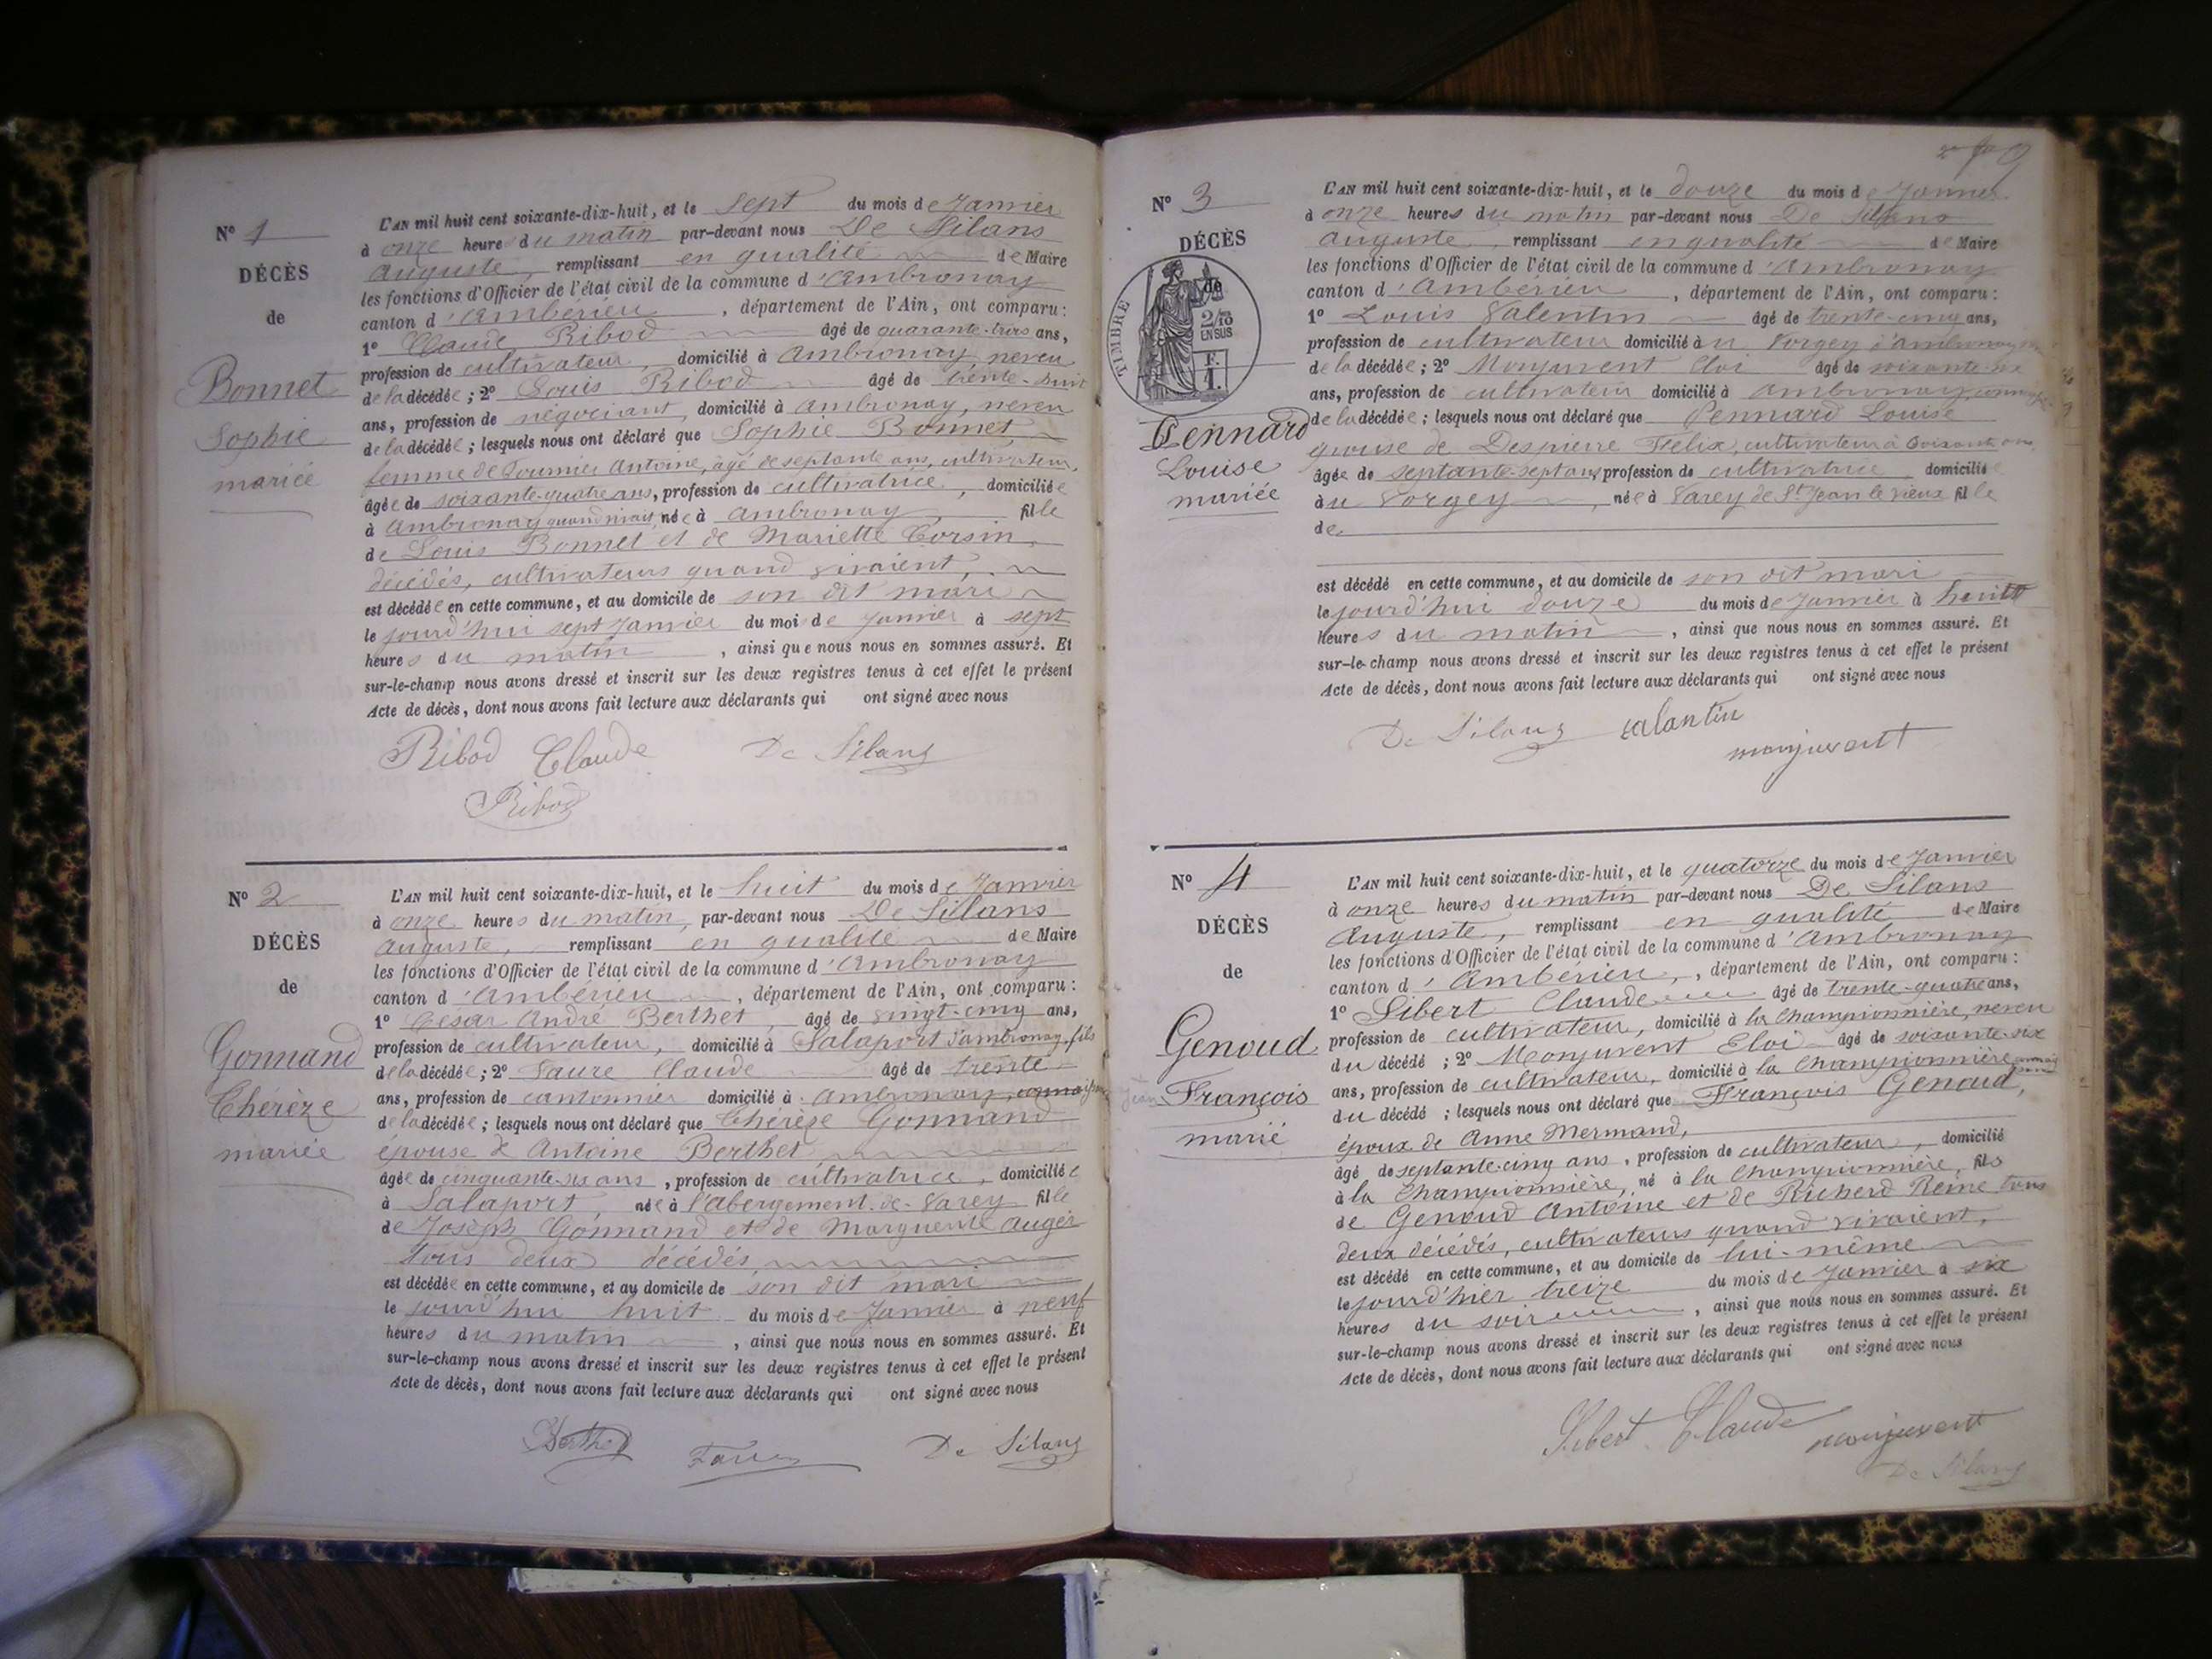 N° 1
DÉCÈS
de
Bonnet
Sophie
mariée
L'AN mil huit cent soixante-dix-huit, et le sept du mois de Janvier
à onze heures du matin par-devant nous De Silans
Auguste, remplissant en qualité de Maire
les fonctions d'Officier de l'état civil de la commune d'Ambronay
canton d'Ambérieu, département de l'Ain, ont comparu :
1° Claude Ribod âgé de quarante-trois ans,
profession de cultivateur, domicilié à Ambronay, neveu
de la décédée ; 2° Louis Ribod âgé de trente-huit
ans, profession de négociant, domicilié à Ambronay, neveu
de la décédée ; lesquels nous ont déclaré que Sophie Bonnet,
femme de Fournier Antoine, âgé de septante ans, cultivateur,
âgée de soixante-quatre ans, profession de cultivatrice, domiciliée
à Ambronay quand vivait, née à Ambronay, fille
de Louis Bonnet et de Mariette Corsin,
décédés, cultivateurs quand vivaient,
est décédée en cette commune, et au domicile de son dit mari
le jourd'hui sept Janvier du mois de Janvier à sept
heures du matin, ainsi que nous nous en sommes assuré. Et
sur-le-champ nous avons dressé et inscrit sur les deux registres tenus à cet effet le présent
Acte de décès, dont nous avons fait lecture aux déclarants qui ont signé avec nous
Ribod Claude De Silans
Ribod
N° 2
DÉCÈS
de
Gonnand
Thérèze
mariée
L'AN mil huit cent soixante-dix-huit, et le huit du mois de Janvier
à onze heures du matin, par-devant nous De Silans
Auguste, remplissant en qualité de Maire
les fonctions d'Officier de l'état civil de la commune d'Ambronay
canton d'Ambérieu, département de l'Ain, ont comparu :
1° César André Berthet, âgé de vingt-cinq ans,
profession de cultivateur, domicilié à Salaport d'Ambronay, fils
de la décédée ; 2° Faure Claude âgé de trente
ans, profession de cantonnier domicilié à Ambronay,
de la décédée ; lesquels nous ont déclaré que Thérèze Gonnand
épouse d'Antoine Berthet
âgée de cinquante-six ans, profession de cultivatrice, domiciliée
à Salaport, née à l'Abergement-de-Varey fille
de Joseph Gonnand et de Marguerite Auger
tous deux décédés
est décédée en cette commune, et au domicile de son dit mari
le jourd'hui huit du mois de Janvier à neuf
heures du matin, ainsi que nous nous en sommes assuré. Et
sur-le-champ nous avons dressé et inscrit sur les deux registres tenus à cet effet le présent
Acte de décès, dont nous avons fait lecture aux déclarants qui ont signé avec nous
Berthet Faure De Silans
N° 3
DÉCÈS
de
TIMBRE
2/10
EN SUS
F.
1.
Pennard
Louise
mariée
L'AN mil huit cent soixante-dix-huit, et le douze du mois de Janvier
à onze heures du matin par-devant nous De Silans
Auguste, remplissant en qualité de Maire
les fonctions d'Officier de l'état civil de la commune d'Ambronay
canton d'Ambérieu, département de l'Ain, ont comparu :
1° Louis Valentin âgé de trente-cinq ans,
profession de cultivateur domicilié à u Vorgey d'Ambronay
de la décédée ; 2° Monjuvent Eloi âgé de soixante-six
ans, profession de cultivateur domicilié à Ambronay,
de la décédée ; lesquels nous ont déclaré que Pennard Louise
épouse de Despierre Félix, cultivateur à
âgée de septante-sept ans, profession de cultivatrice domicilié
à u Vorgey, née à Varey de St Jean le vieux fille
de
est décédé en cette commune, et au domicile de son dit mari
le jourd'hui douze du mois de Janvier à huit
heures du matin, ainsi que nous nous en sommes assuré. Et
sur-le-champ nous avons dressé et inscrit sur les deux registres tenus à cet effet le présent
Acte de décès, dont nous avons fait lecture aux déclarants qui ont signé avec nous
De Silans valantin
monjuvent
N° 4
DÉCÈS
de
Genoud
Jean
François
marié
L'AN mil huit cent soixante-dix-huit, et le quatorze du mois de Janvier
à onze heures du matin par-devant nous De Silans
Auguste, remplissant en qualité de Maire
les fonctions d'Officier de l'état civil de la commune d'Ambronay
canton d'Ambérieu, département de l'Ain, ont comparu :
1° Sibert Claude âgé de trente-quatre ans,
profession de cultivateur, domicilié à la Championnière, neveu
du décédé ; 2° Monjuvent Eloi âgé de soixante-six
ans, profession de cultivateur, domicilié à la Championnière
du décédé ; lesquels nous ont déclaré que François Genoud,
époux de Anne Mermand,
âgé de septante-cinq ans, profession de cultivateur, domicilié
à la Championnière, né à la Championnière, fils
de Genoud Antoine et de Richerd Reine tous
deux décédés, cultivateurs quand vivaient,
est décédé en cette commune, et au domicile de lui-même
le jourd'hier treize du mois de Janvier à six
heures du soir, ainsi que nous nous en sommes assuré. Et
sur-le-champ nous avons dressé et inscrit sur les deux registres tenus à cet effet le présent
Acte de décès, dont nous avons fait lecture aux déclarants qui ont signé avec nous
Sibert Claude monjuvent
De Silans